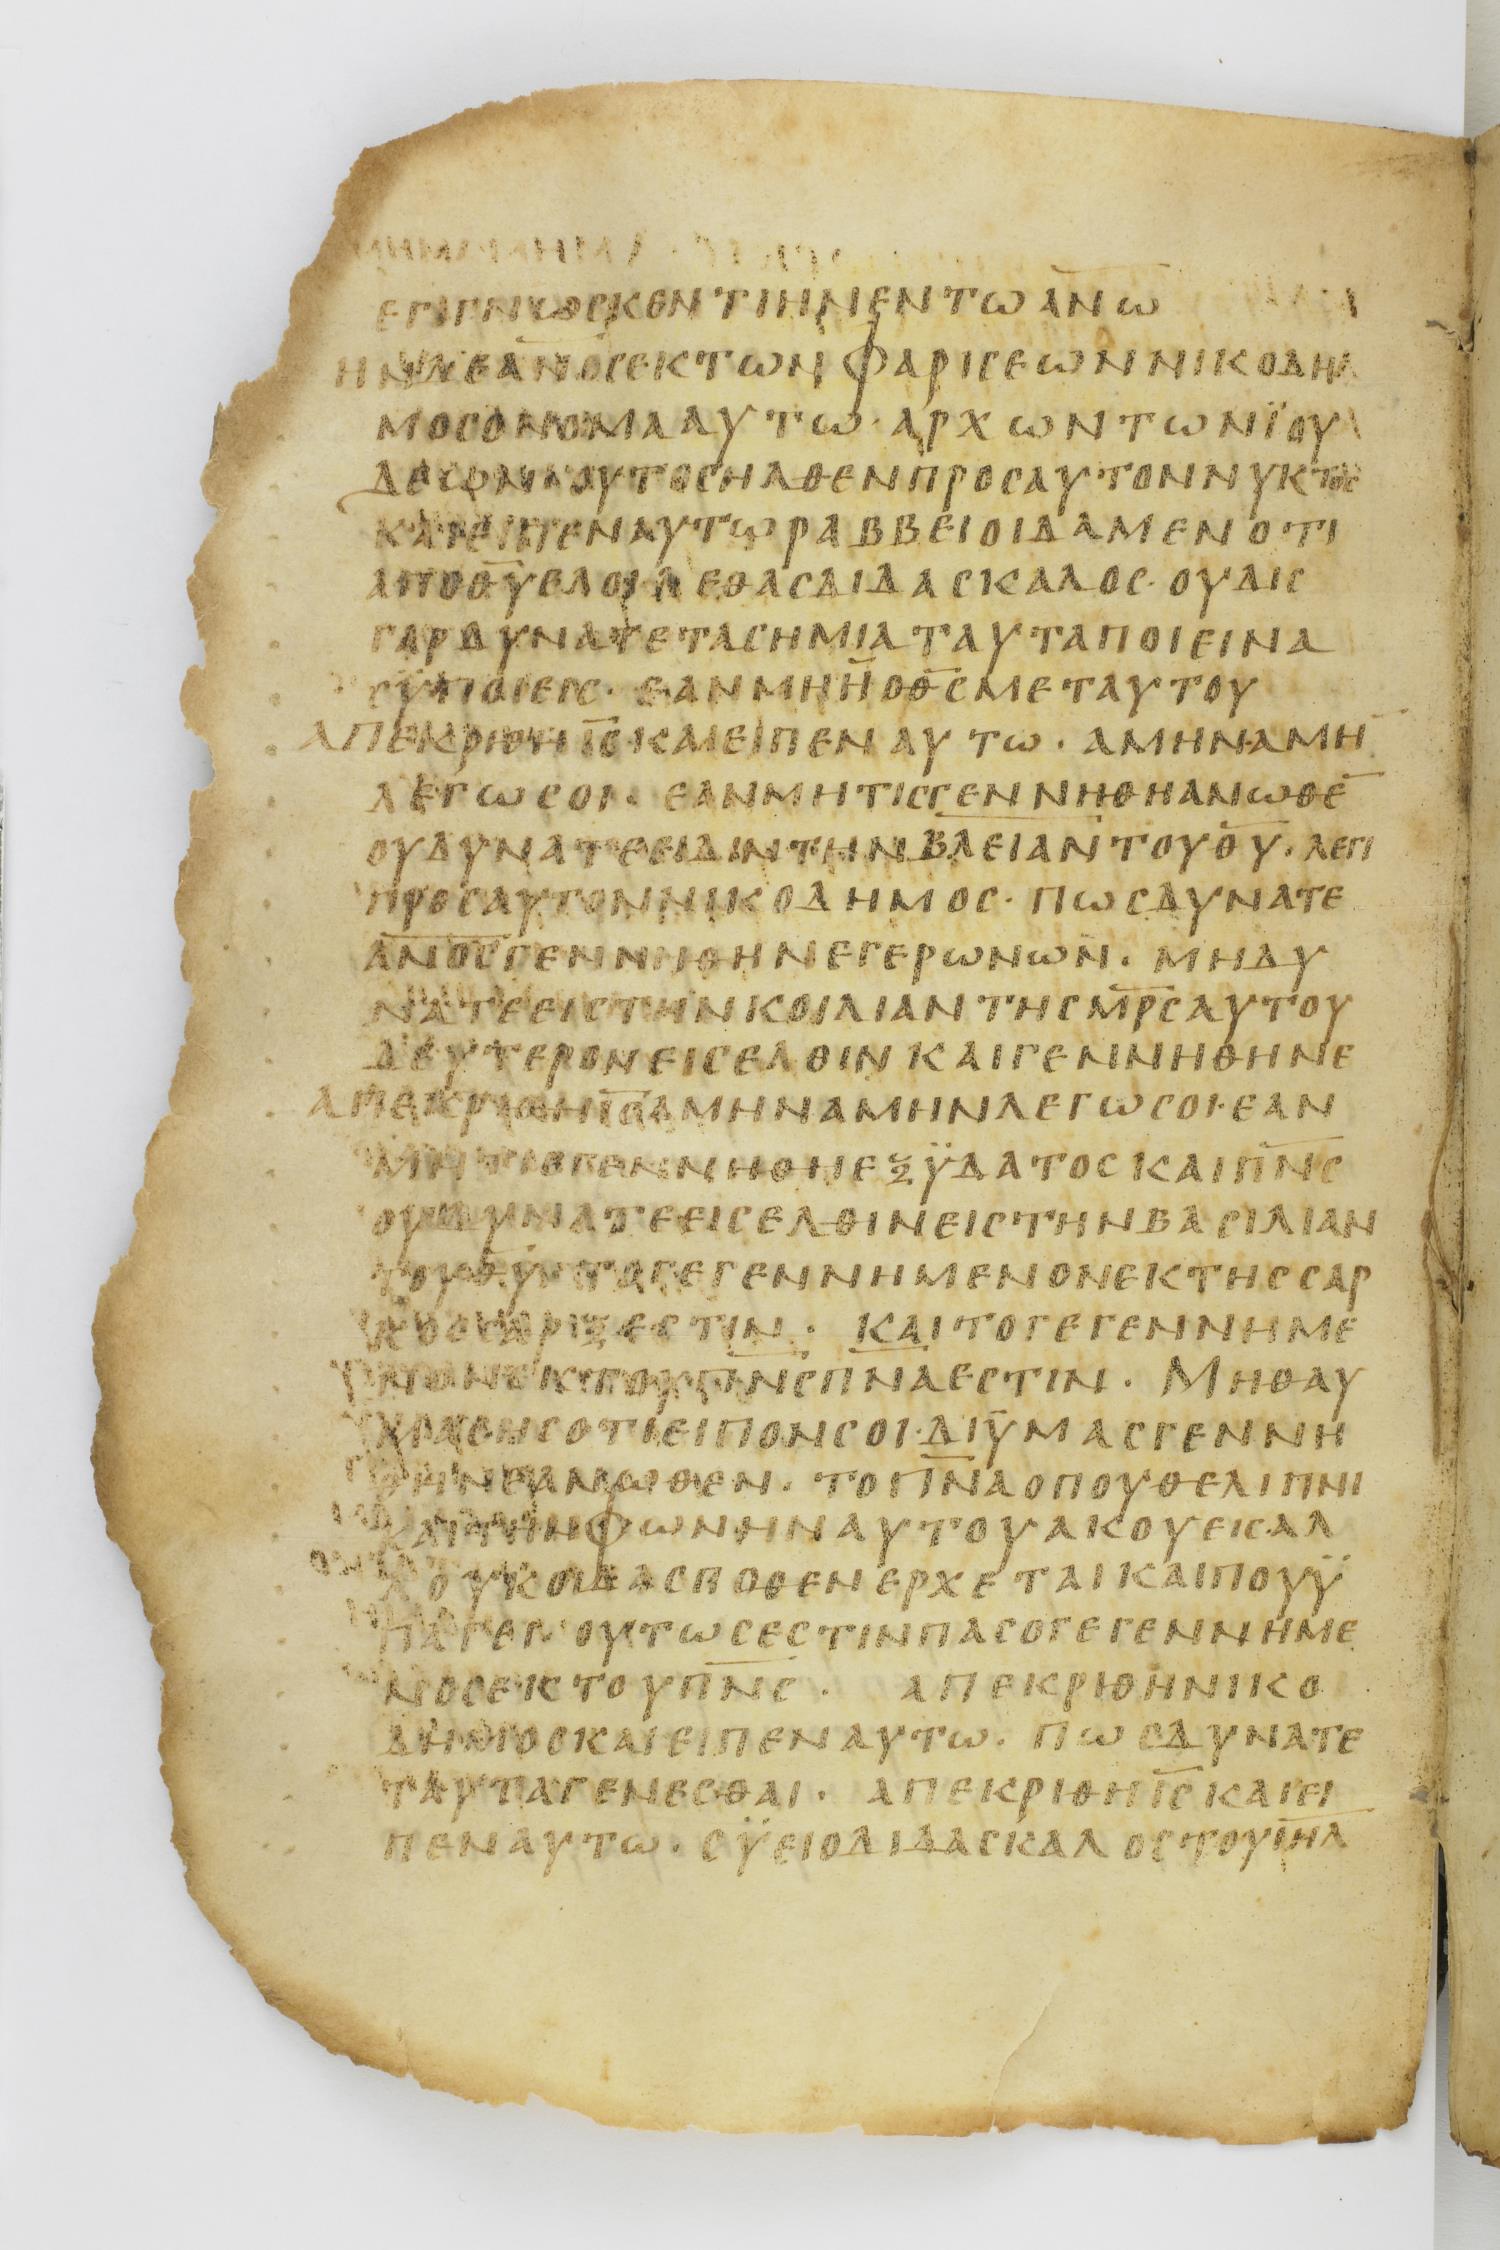 ΕΓΙΓΝΩΣΚΕΝ ΤΙ ΗΝ ΕΝ ΤΩ ΑΝ̅Ω̅
ΗΝ ΔΕ ΑΝ̅ΟΣ ΕΚ ΤΩΝ ΦΑΡΙΣΕΩΝ ΝΙΚΟΔΗ
ΜΟΣ ΟΝΟΜΑ ΑΥΤΩ · ΑΡΧΩΝ ΤΩΝ ΪΟΥ
ΔΕΩΝ ΟΥΤΟΣ ΗΛΘΕΝ ΠΡΟΣ ΑΥΤΟΝ ΝΥΚΤΟΣ
ΚΑΙ ΕΙΠΕΝ ΑΥΤΩ ΡΑΒΒΕΙ ΟΙΔΑΜΕΝ ΟΤΙ
ΑΠΟ Θ̅Υ̅ ΕΛΟΙΛΕΘΑΣ ΔΙΔΑΣΚΑΛΟΣ · ΟΥΔΙΣ
ΓΑΡ ΔΥΝΑΤΕ ΤΑ ΣΗΜΙΑ ΤΑΥΤΑ ΠΟΙΕΙΝ Α
ΣΥ ΠΟΙΕΙΣ · ΕΑΝ ΜΗ Η̅ Ο Θ̅Σ̅ ΜΕΤ ΑΥΤΟΥ
ΑΠΕΚΡΙΘΗ Ι̅Σ̅ ΚΑΙ ΕΙΠΕΝ ΑΥΤΩ · ΑΜΗΝ ΑΜΗ̅
ΛΕΓΩ ΣΟΙ · ΕΑΝ ΜΗ ΤΙΣ ΓΕΝΝΗΘΗ ΑΝΩΘΕ̅
ΟΥ ΔΥΝΑΤΕ ΕΙΔΙΝ ΤΗΝ Β̅Λ̅Ε̅Ι̅Α̅Ν̅ ΤΟΥ Θ̅Υ̅ · ΛΕΓΙ
ΠΡΟΣ ΑΥΤΟΝ ΝΙΚΟΔΗΜΟΣ · ΠΩΣ ΔΥΝΑΤΕ
Α̅Ν̅Ο̅Σ̅ ΓΕΝΝΗΘΗΝΕ ΓΕΡΩΝ ΩΝ · ΜΗ ΔΥ
ΝΑΤΕ ΕΙΣ ΤΗΝ ΚΟΙΛΙΑΝ ΤΗΣ Μ̅Ρ̅Σ̅ ΑΥΤΟΥ
ΔΕΥΤΕΡΟΝ ΕΙΣΕΛΘΙΝ ΚΑΙ ΓΕΝΝΗΘΗΝΕ
ΑΠΕΚΡΙΘΗ Ι̅Σ̅ ΑΜΗΝ ΑΜΗΝ ΛΕΓΩ ΣΟΙ · ΕΑΝ
ΜΗ ΤΙΣ ΓΕΝΝΗΘΗ ΕΞ ΫΔΑΤΟΣ ΚΑΙ Π̅Ν̅Σ̅
ΟΥ ΔΥΝΑΤΕ ΕΙΣΕΛΘΙΝ ΕΙΣ ΤΗΝ ΒΑΣΙΛΙΑΝ
ΤΟΥ Θ̅Υ̅ ΤΟ ΓΕΓΕΝΝΗΜΕΝΟΝ ΕΚ ΤΗΣ ΣΑΡ
ΚΟΣ ΣΑΡΞ ΕΣΤΙΝ · ΚΑΙ ΤΟ ΓΕΓΕΝΝΗΜΕ
ΝΟΝ ΕΚ ΤΟΥ Π̅Ν̅Σ̅ Π̅Ν̅Α̅ ΕΣΤΙΝ · ΜΗ ΘΑΥ
ΜΑΣΗΣ ΟΤΙ ΕΙΠΟΝ ΣΟΙ · ΔΙ ΫΜΑΣ ΓΕΝΝΗ
ΘΗΝΕ ΑΝΩΘΕΝ · ΤΟ Π̅Ν̅Α̅ ΟΠΟΥ ΘΕΛΙ ΠΝΙ
ΚΑΙ ΤΗΝ ΦΩΝΗΝ ΑΥΤΟΥ ΑΚΟΥΕΙΣ ΑΛ
Λ ΟΥΚ ΟΙΔΑΣ ΠΟΘΕΝ ΕΡΧΕΤΑΙ ΚΑΙ ΠΟΥ Ϋ
ΠΑΓΕΙ · ΟΥΤΩΣ ΕΣΤΙΝ ΠΑΣ Ο ΓΕΓΕΝΝΗΜΕ
ΝΟΣ ΕΚ ΤΟΥ Π̅Ν̅Σ̅ · ΑΠΕΚΡΙΘΗ ΝΙΚΟ
ΔΗΜΟΣ ΚΑΙ ΕΙΠΕΝ ΑΥΤΩ · ΠΩΣ ΔΥΝΑΤΕ
ΤΑΥΤΑ ΓΕΝΕΣΘΑΙ · ΑΠΕΚΡΙΘΗ Ι̅Σ̅ ΚΑΙ ΕΙ
ΠΕΝ ΑΥΤΩ · ΣΫ ΕΙ Ο ΔΙΔΑΣΚΑΛΟΣ ΤΟΥ Ι̅Η̅Λ̅